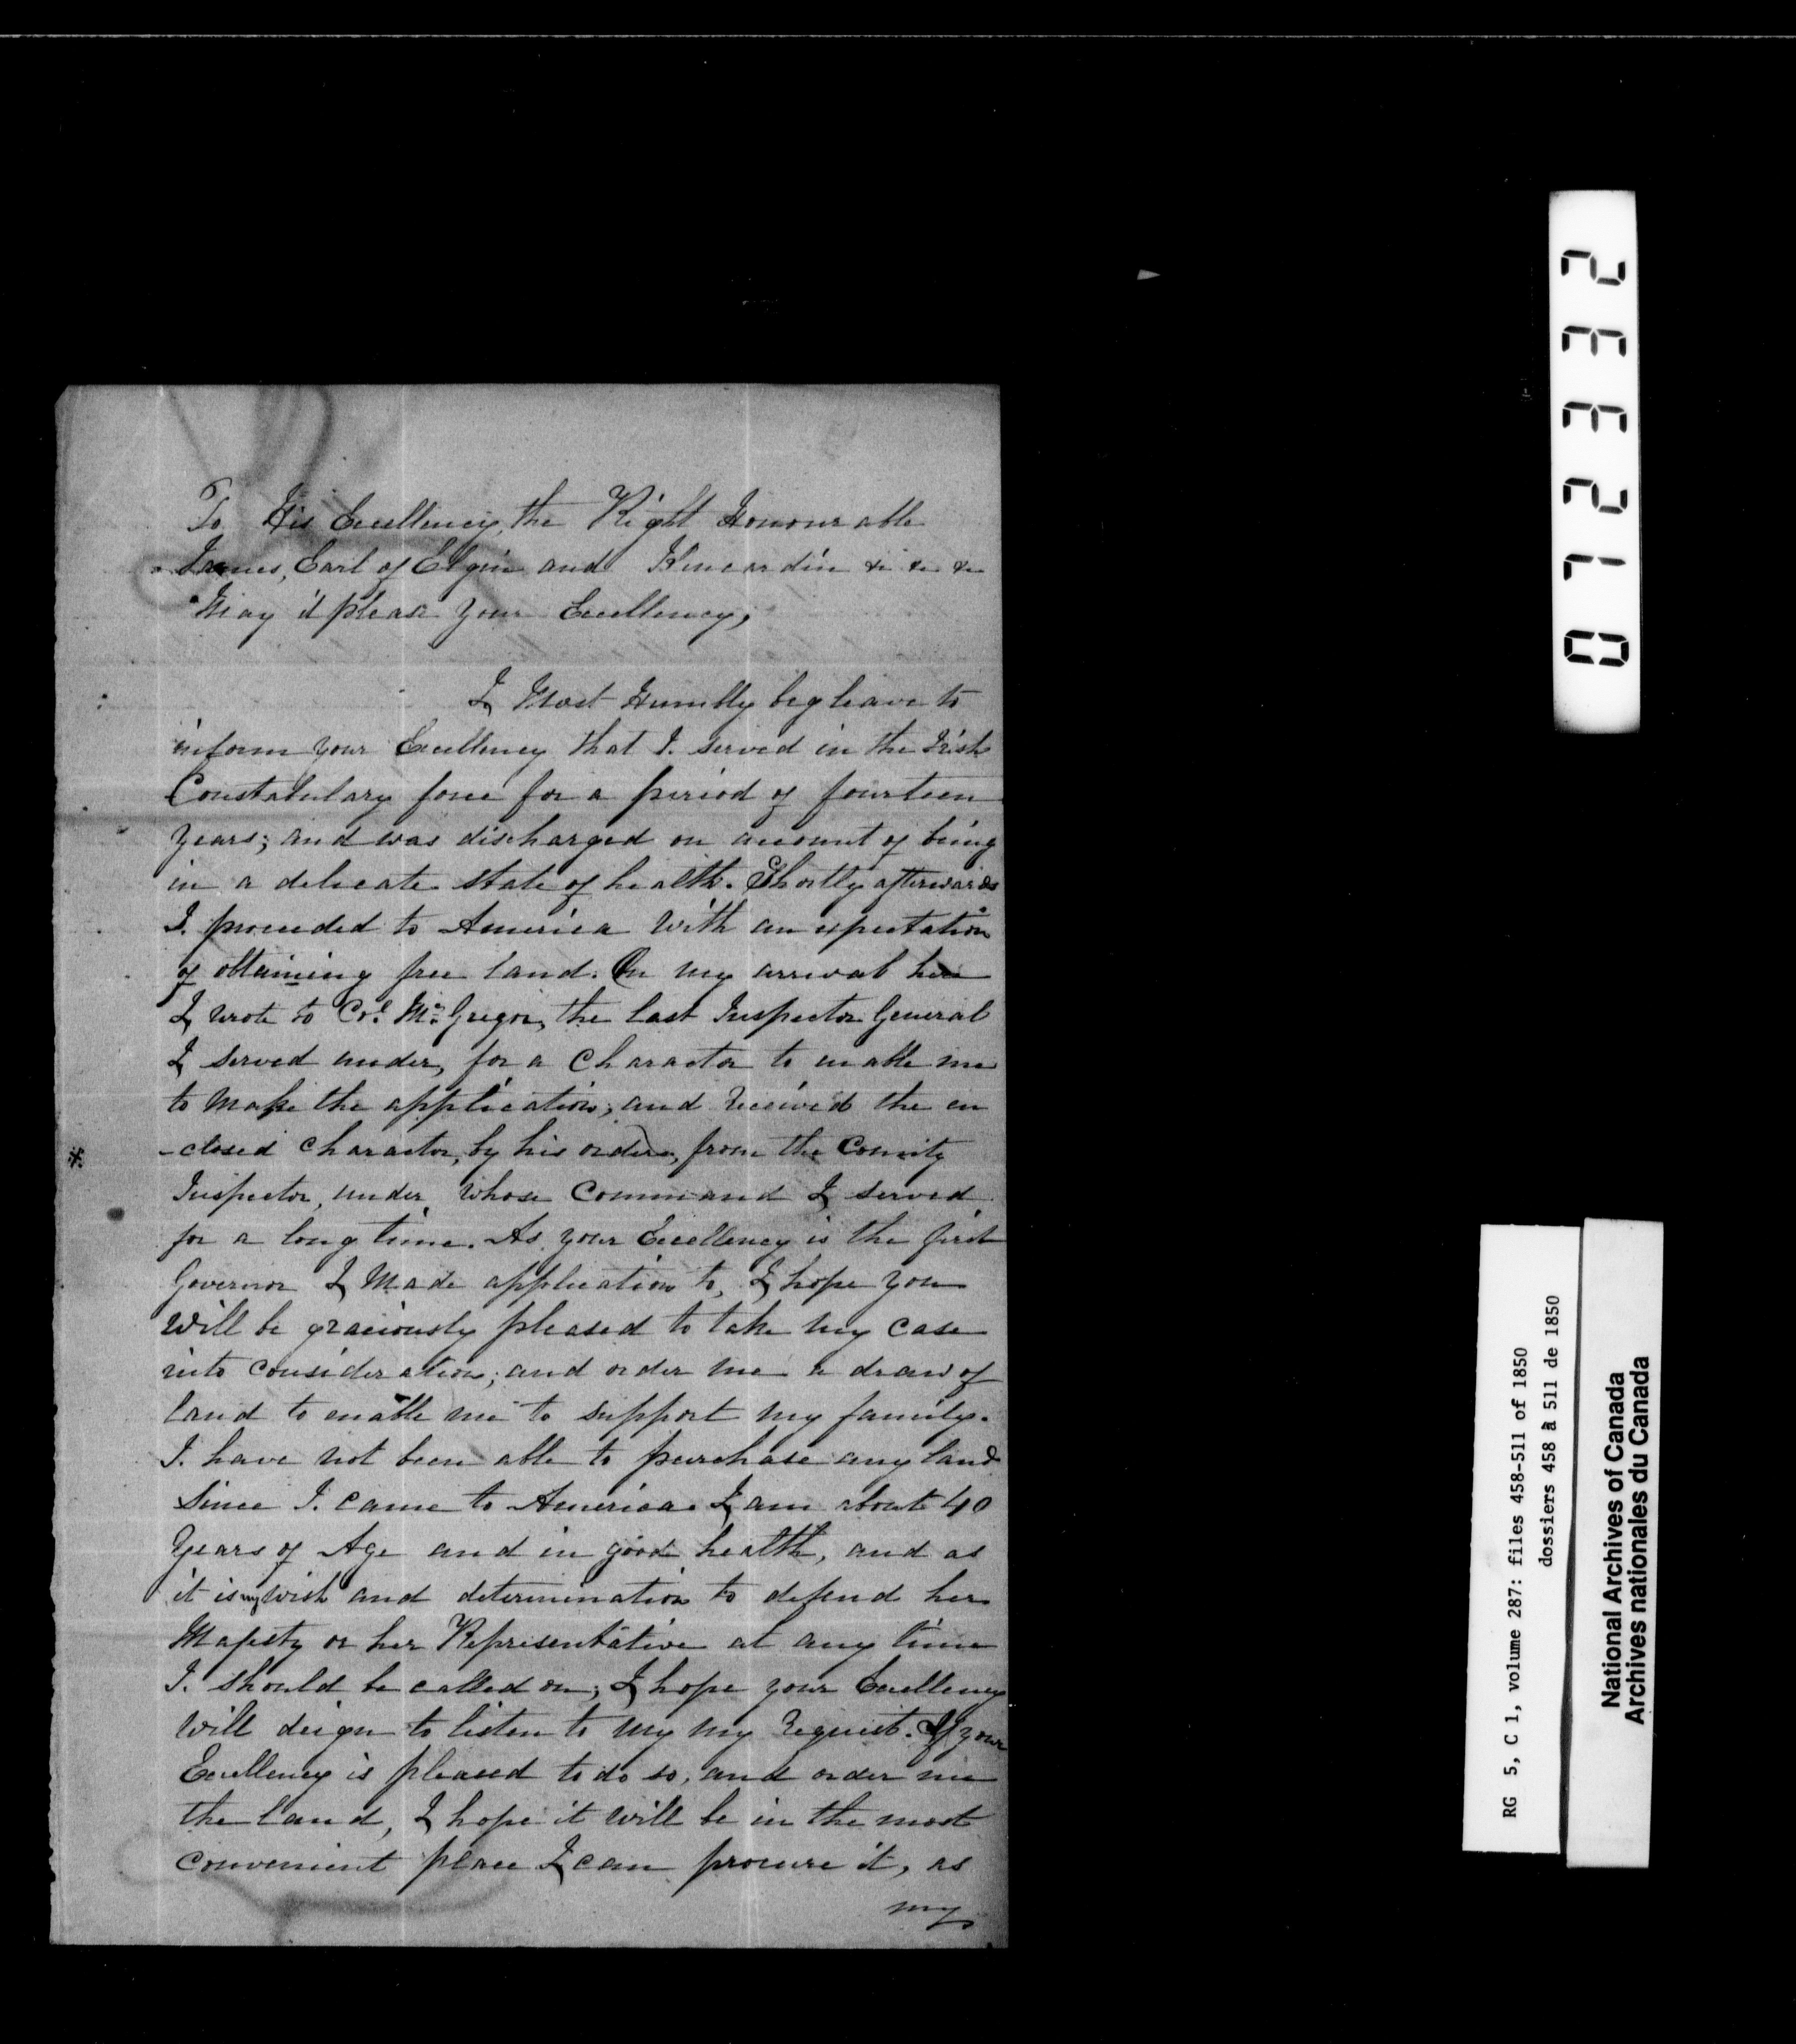 To His Excellency, the Right Honourable
James, Earl of Elgin and Kincardin &c &c &c
May it please your Excellency,
I Most Humbly beg leave to
inform your Excellency that I. served in the Irish
Constabulary force for a period of fourteen
years; and was discharged on account of being
in a delicate state of health. Shortly afterwards
I. proceeded to America with an expectation
of obtaining free land. On my arrival here
I wrote to Col. Mc.Gregor, the last Inspector General
I served under, for a Character to enable me
to make the application; and received the en
-closed Character, by his orders, from the County
Inspector, under whose Command I served
for a long time. As your Excellency is the first
Governor I Made application to, I hope you
will be graciously pleased to take my case
into consideration; and order me a draw of
land to enable me to support my family.
I. have not been able to purchase any land
Since I. came to America. I am about 40
Years of Age and in good health, and as
it is my wish and determination to defend her
Majesty or her Representative at any time
I. should be called on; I hope your Excellency
will deign to listen to my my request. If your
Excellency is pleased to do so, and order me
the land, I hope it will be in the most
convenient place I can procure it, as
my
0712332
RG 5, C 1, volume 287: files 458-511 of 1850
dossiers 458 à 511 de 1850
National Archives of Canada
Archives nationales du Canada